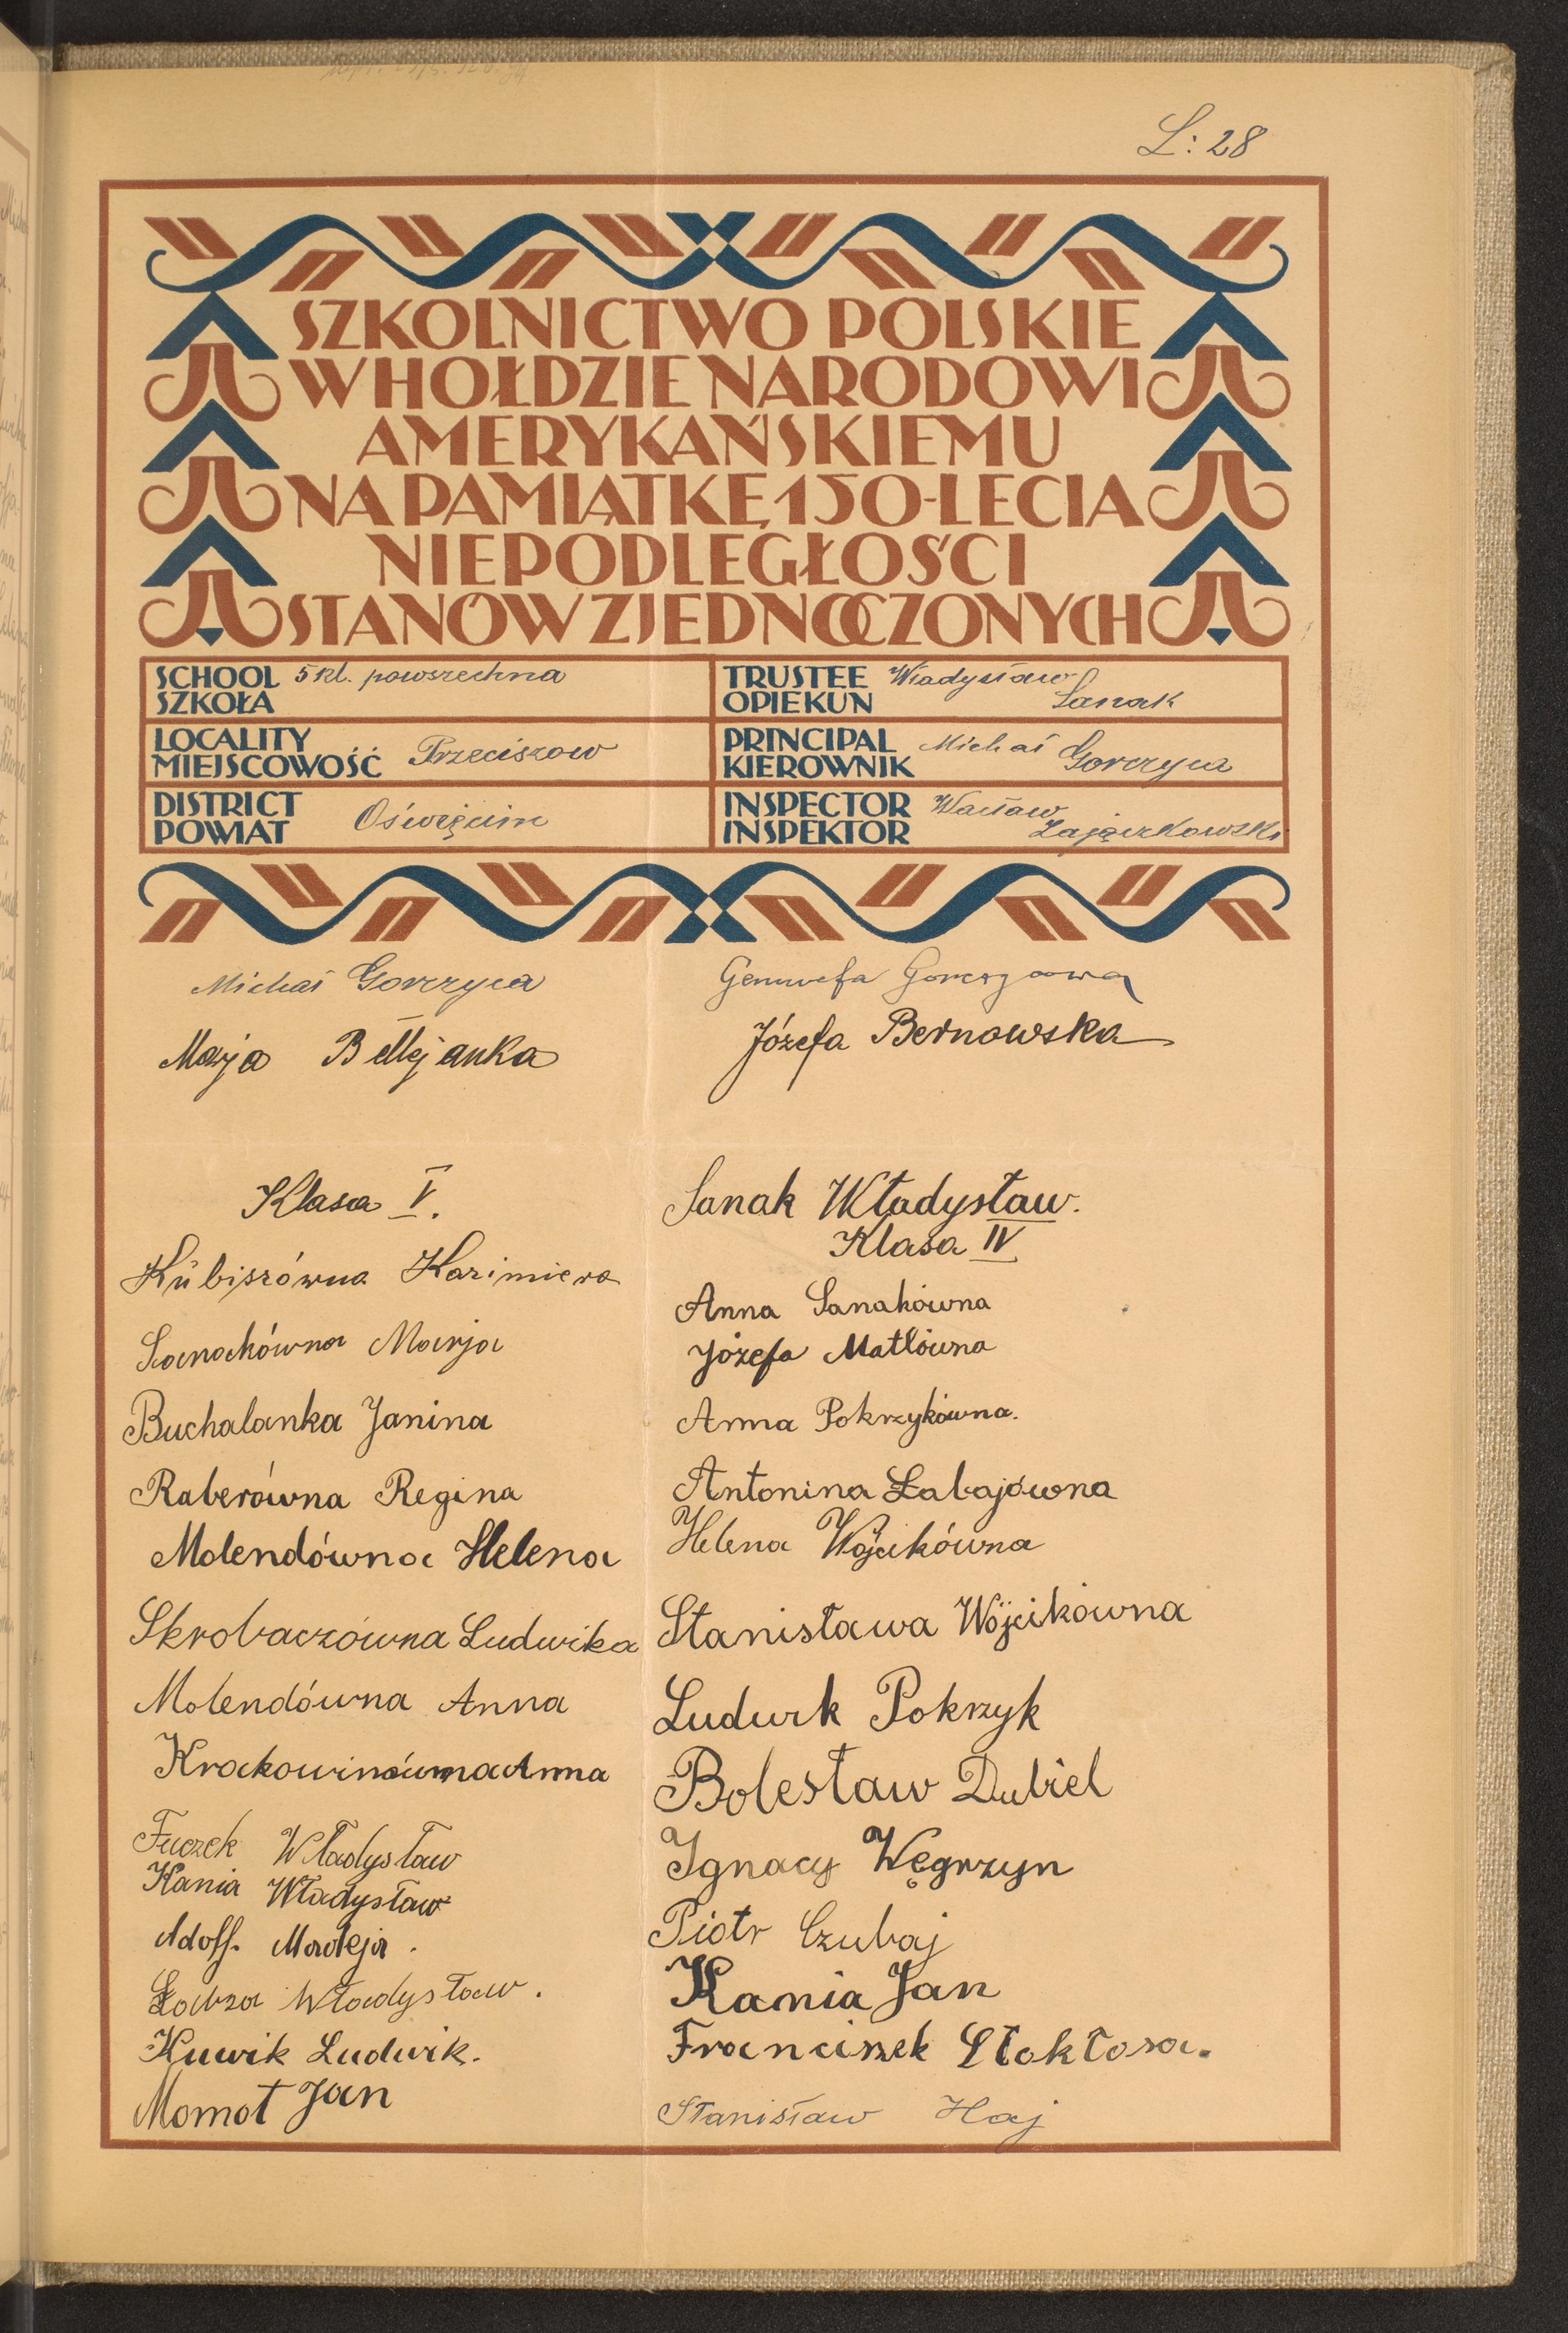 L: 28
SZKOLNICTWO POLSKIE
W HOŁDZIE NARODOWI
AMERYKAŃSKIEMU
NA PAMIĄTKĘ 150-LECIA
NIEPODLEGŁOŚCI
STANÓW ZJEDNOCZONYCH
SCHOOL SZKOŁA 5 kl. powszechna
LOCALITY MIEJSCOWOŚĆ Przeciszow
DISTRICT POWIAT Oświęcim
TRUSTEE OPIEKUN Władysław Sanak
PRINCIPAL KIEROWNIK Michał Gorczyca
INSPECTOR INSPEKTOR Wacław Zajączkowski
Michał Gorczyca
Marja
Genowefa
Józefa Bernowska
Klasa V.
Kubiszówna Kazimiera
Sanakówna Marja
Buchalanka Janina
Raberówna Regina
Molendówna Helena
Skrobaczówna Ludwika
Molendówna Anna
Anna
Fuczek Władysław
Kania Władysław
Adolf. Madeja.
Władysław.
Kuwik Ludwik.
Momot Jan
Sanak Władysław.
Klasa IV
Anna Sanakówna
Józefa Matlówna
Anna Pokrzykówna.
Antonina Łabajówna
Helena Wójcikówna
Stanisława Wójcikówna
Ludwik Pokrzyk
Bolesław Dubiel
Ignacy Węgrzyn
Piotr Czubaj
Kania Jan
Franciszek Stokłosa.
Stanisław Haj